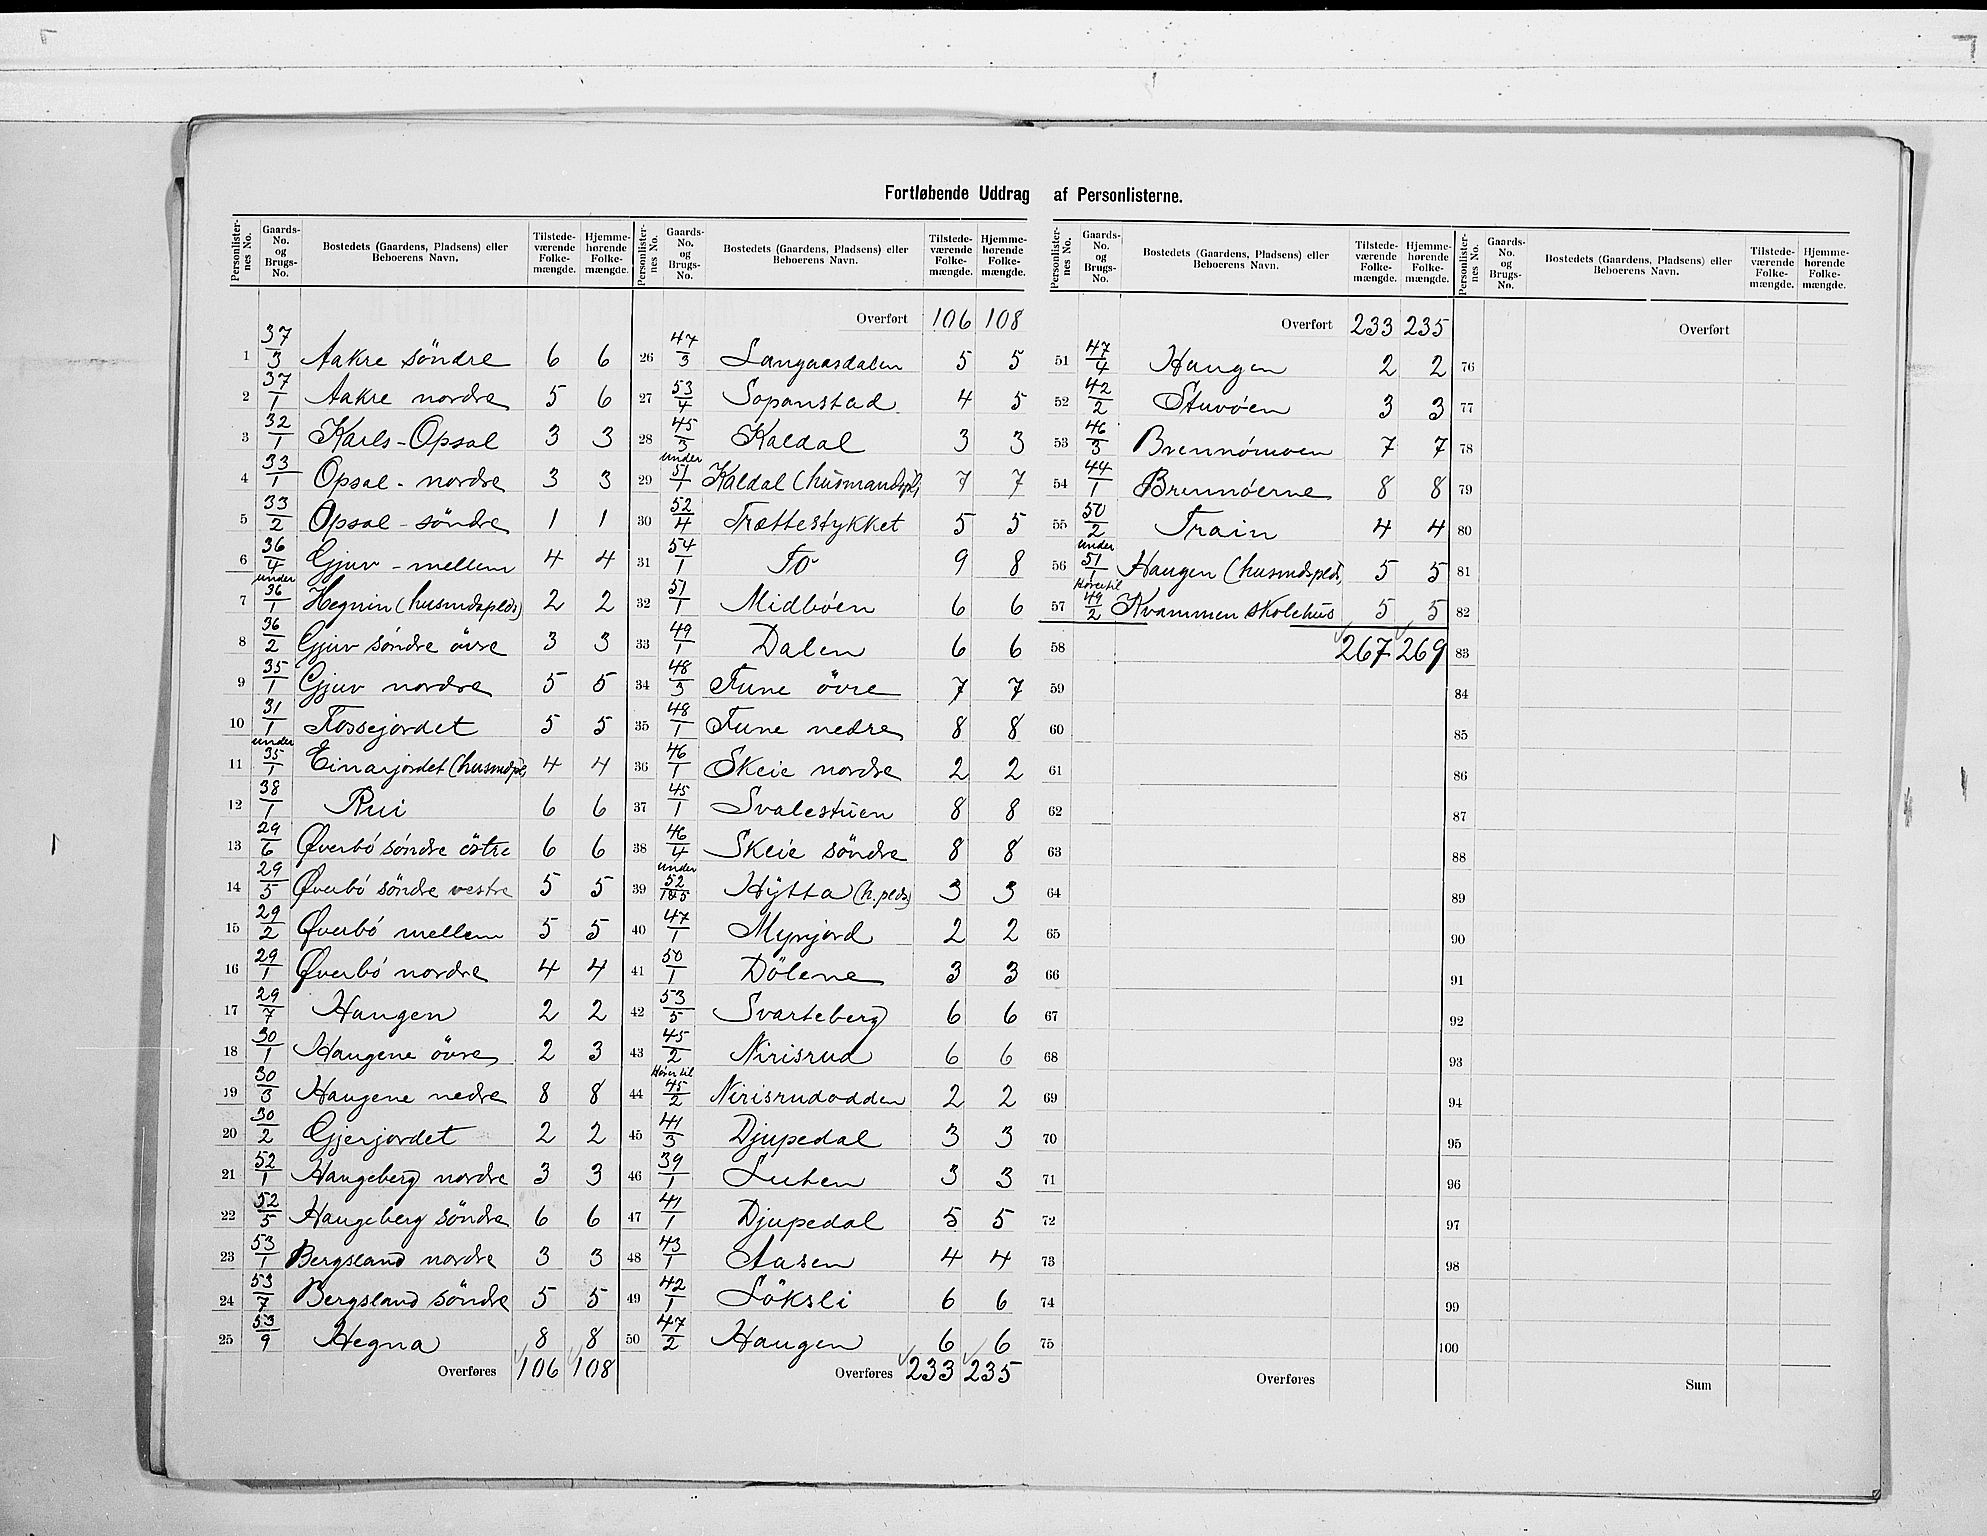 Fortløbende Uddrag af Personlisterne.
Personlister-nes No. | Gaards-No. og Brugs-No. | Bostedets (Gaardens, Pladsens) eller Beboerens Navn. | Tilstede-værende Folke-mængde. | Hjemme-hørende Folke-mængde.
1 37/3 Aakre söndre 6 6
2 37/1 Aakre nordre 5 6
3 32/1 Karls-Opsal 3 3
4 33/1 Opsal - nordre 3 3
5 33/2 Opsal - söndre 1 1
6 36/4 Gjuv - mellem 4 4
7 under 36/1 Hegnin (husmdsplds) 2 2
8 36/2 Gjuv söndre övre 3 3
9 35/1 Gjuv nordre 5 5
10 31/1 Fossejordet 5 5
11 under 35/1 Einarjordet (husmdspl 4 4
12 38/1 Rui 6 6
13 29/6 Øverbö söndre östre 6 6
14 29/5 Øverbö söndre vestre 5 5
15 29/2 Øverbö mellem 5 5
16 29/1 Øverbö nordre 4 4
17 29/7 Haugen 2 2
18 30/1 Haugene övre 2 3
19 30/3 Haugene nedre 8 8
20 30/2 Gjerjordet 2 2
21 52/1 Haugeberg nordre 3 3
22 52/5 Haugeberg söndre 6 6
23 53/1 Bergsland nordre 3 3
24 53/7 Bergsland söndre 5 5
25 53/9 Hegna 8 8
Overføres 106 108
Personlister-nes No. | Gaards-No. og Brugs-No. | Bostedets (Gaardens, Pladsens) eller Beboerens Navn. | Tilstede-værende Folke-mængde. | Hjemme-hørende Folke-mængde.
Overført 106 108
26 47/3 Langaasdalen 5 5
27 53/4 Sopanstad 4 5
28 45/3 Kaldal 3 3
29 under 51/1 Kaldal (husmandspl) 7 7
30 52/4 Trættestykket 5 5
31 54/1 To 9 8
32 51/1 Midböen 6 6
33 49/1 Dalen 6 6
34 48/3 Tune övre 7 7
35 48/1 Tune nedre 8 8
36 46/1 Skeie nordre 2 2
37 45/1 Svalestuen 8 8
38 46/4 Skeie söndre 8 8
39 under 52/1&5 Hÿtta (h.plds) 3 3
40 47/1 Myrjord 2 2
41 50/1 Dölene 3 3
42 53/5 Svarteberg 6 6
43 45/2 Nirisrud 6 6
44 Hører til 45/2 Nirisrudodden 2 2
45 41/3 Djupedal 3 3
46 39/1 Luten 3 3
47 41/1 Djupedal 5 5
48 43/1 Aasen 4 4
49 42/1 Löksli 6 6
50 47/2 Haugen 6 6
Overføres 233 235
Personlister-nes No. | Gaards-No. og Brugs-No. | Bostedets (Gaardens, Pladsens) eller Beboerens Navn. | Tilstede-værende Folke-mængde. | Hjemme-hørende Folke-mængde.
Overført 233 235
51 47/4 Haugen 2 2
52 42/2 Stuvöen 3 3
53 46/3 Brennömoen 7 7
54 44/1 Brennöerne 8 8
55 50/2 Train 4 4
56 under 51/1 Haugen (husmdsplds) 5 5
57 Hører til 49/2 Kvammen skolehus 5 5
58 267 269
59
60
61
62
63
64
65
66
67
68
69
70
71
72
73
74
75
Overføres
Personlister-nes No. | Gaards-No. og Brugs-No. | Bostedets (Gaardens, Pladsens) eller Beboerens Navn. | Tilstede-værende Folke-mængde. | Hjemme-hørende Folke-mængde.
Overført
76
77
78
79
80
81
82
83
84
85
86
87
88
89
90
91
92
93
94
95
96
97
98
99
100
Sum